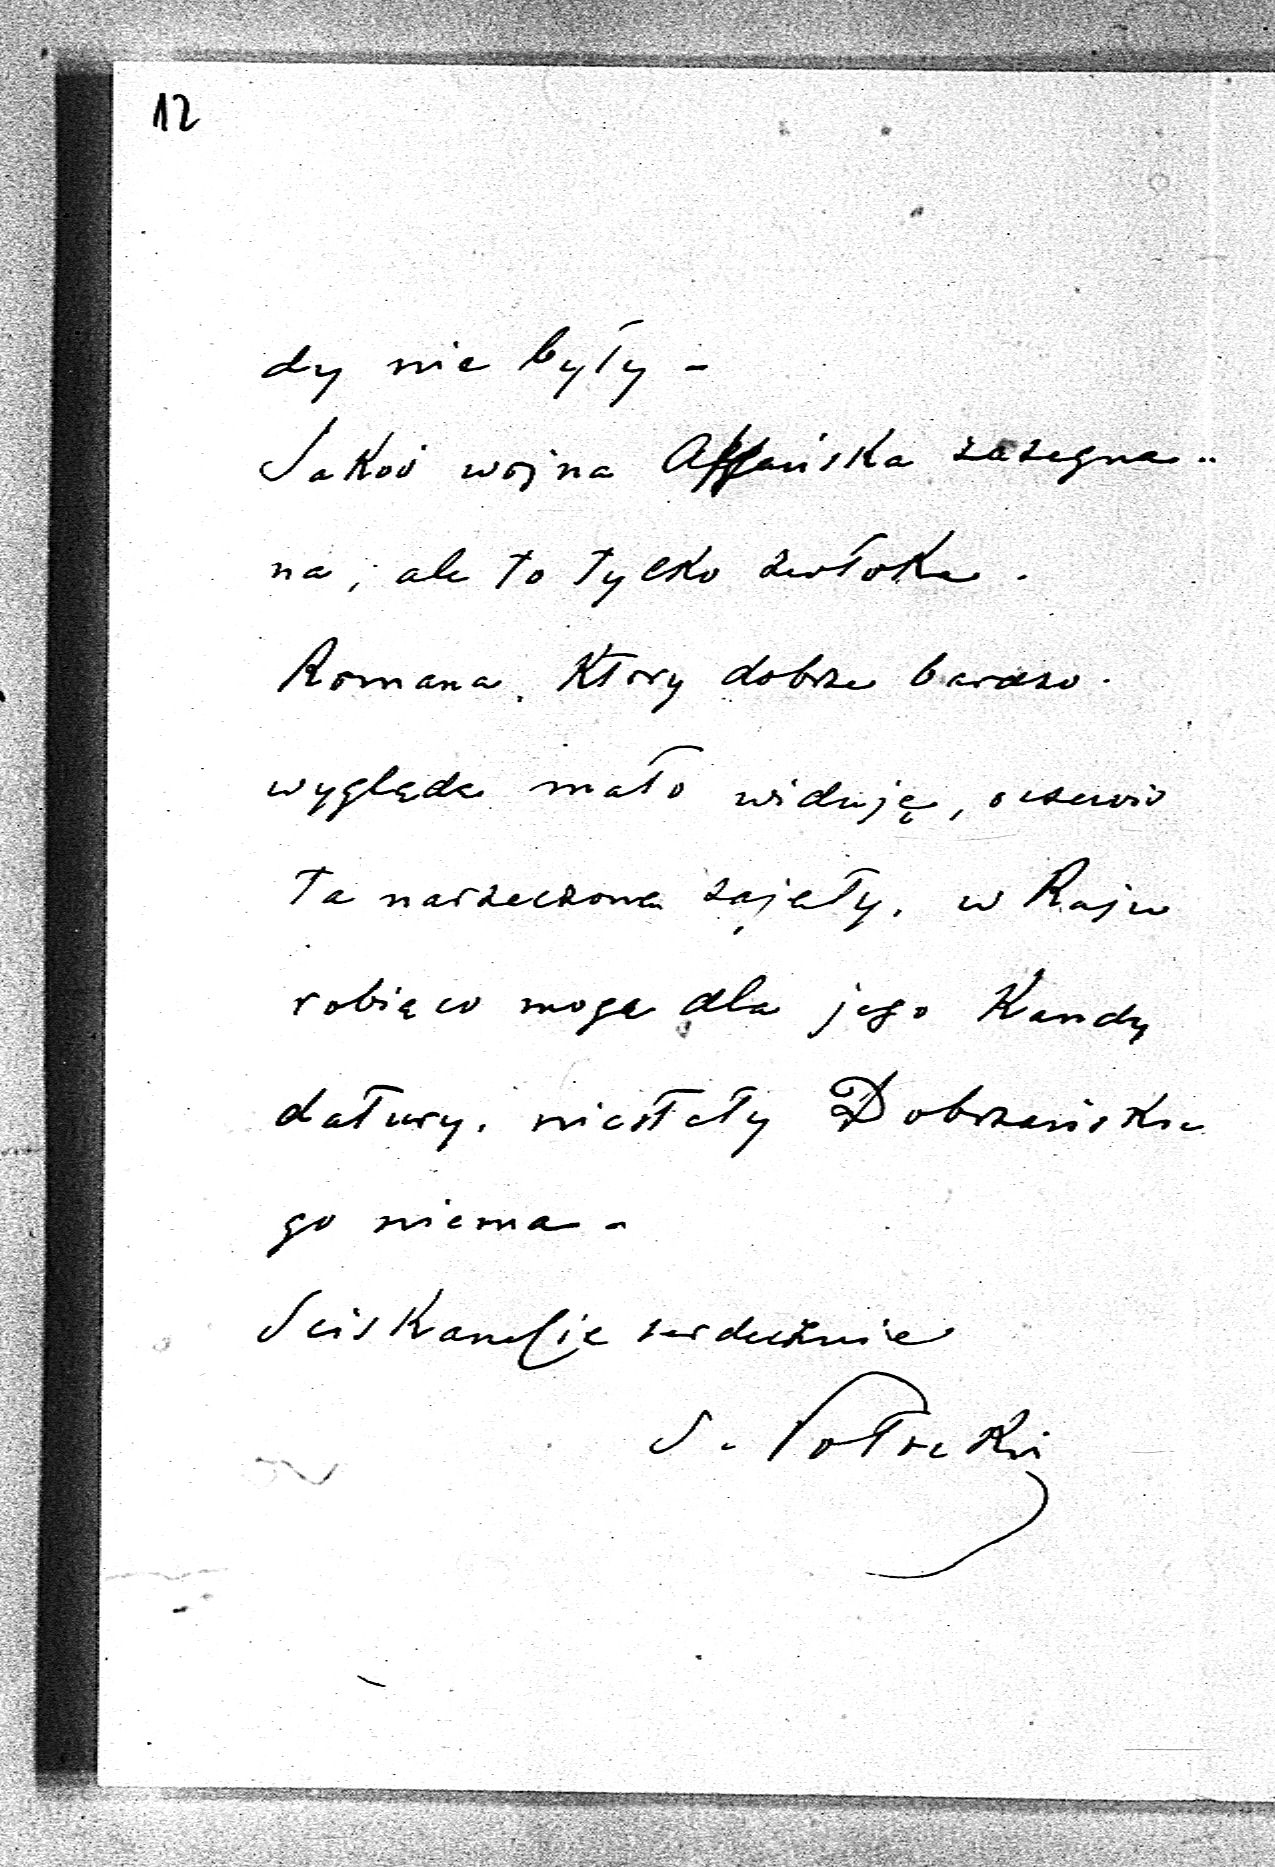 12
dy nie były -
Jakoś wojna Affańska zażegna-
na, ale to tylko zwłoka.
Romana, który dobrze bardzo
wygląda mało widuję, oczewiś
ta narzeczoną zajęty, w Raju
robią co mogą dla jego Kandy
datury, niestety Dobrzańskie
go niema -
Sciskam Cię serdecznie
S. Potocki